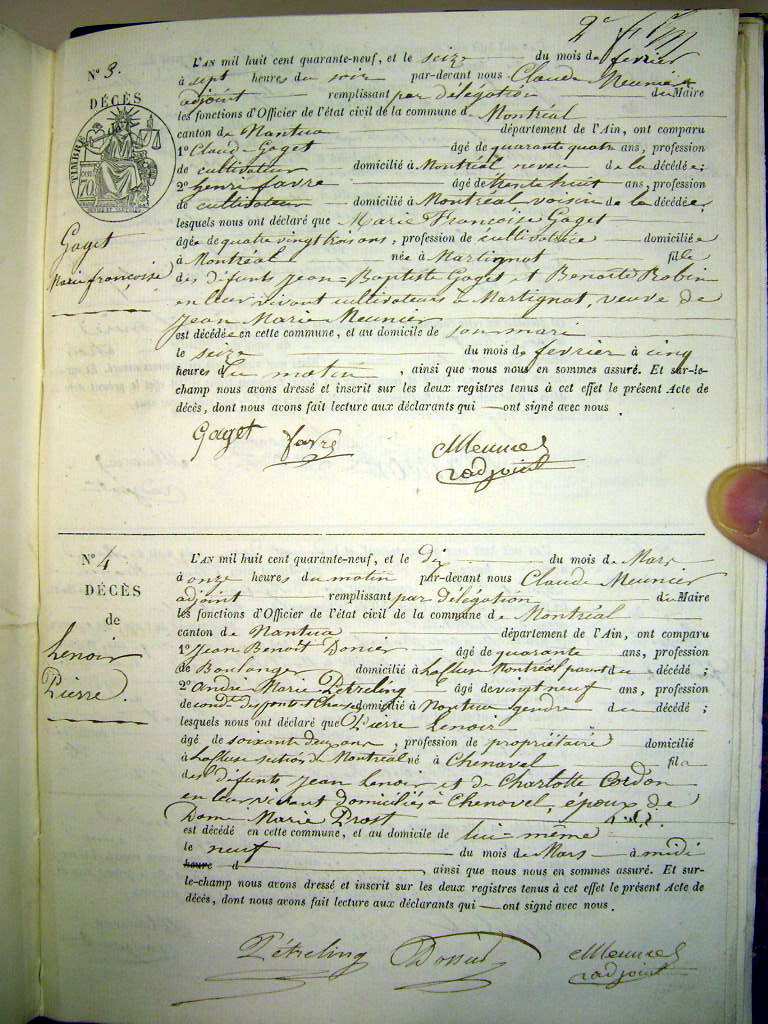 2e
N° 3.
DÉCÈS
TIMBRE
70
Gaget
Marie françoise
L'AN mil huit cent quarante-neuf, et le seize du mois de fevrier
à sept heures du soir par-devant nous Claude Meunier
adjoint remplissant par délégation du Maire
les fonctions d'Officier de l'état civil de la commune de Montréal
canton de Nantua département de l'Ain, ont comparu
1° Claude Gaget âgé de quarante quatre ans, profession
de cultivateur domicilié à Montréal neveu de la décédée;
2° henri favre âgé de trente huit ans, profession
de cultivateur domicilié à Montréal voisin de la décédée,
lesquels nous ont déclaré que Marie Françoise Gaget
âgée de quatre vingt trois ans, profession de cultivatrice domiciliée
à Montréal née à Martignat fille
des défunts Jean=Baptiste Gaget, et Benoite Robin
en leur vivant cultivateurs à Martignat, veuve de
Jean Marie Meunier
est décédée en cette commune, et au domicile de son mari
le seize du mois de fevrier à cinq
heures du matin, ainsi que nous nous en sommes assuré. Et sur-le-
champ nous avons dressé et inscrit sur les deux registres tenus à cet effet le présent Acte de
décès, dont nous avons fait lecture aux déclarants qui — ont signé avec nous.
Gaget favre Meunier
adjoint
N° 4
DÉCÈS
de
Lenoir
Pierre.
L'AN mil huit cent quarante-neuf, et le dix du mois de Mars
à onze heures du matin par-devant nous Claude Meunier
adjoint remplissant par délégation du Maire
les fonctions d'Officier de l'état civil de la commune de Montréal
canton de Nantua département de l'Ain, ont comparu
1° Jean Benoît Donier âgé de quarante ans, profession
de Boulanger domicilié à Lacluse Montréal parent du décédé;
2° André Marie Pétreling âgé de vingt neuf ans, profession
de condr. des ponts et Chaussées domicilié à Nantua gendre du décédé;
lesquels nous ont déclaré que Pierre Lenoir
âgé de soixante deux ans, profession de propriétaire domicilié
à Lacluse section de Montréal né à Chenavel fils
des défunts Jean Lenoir et de Charlotte Cordon
en leur vivant domiciliés à Chenavel, époux de
Dame Marie Prost
est décédé en cette commune, et au domicile de lui=même
le neuf du mois de Mars à midi
heure d, ainsi que nous nous en sommes assuré. Et sur-
le-champ nous avons dressé et inscrit sur les deux registres tenus à cet effet le présent Acte de
décès, dont nous avons fait lecture aux déclarants qui — ont signé avec nous.
Pétreling Donier Meunier
adjoint